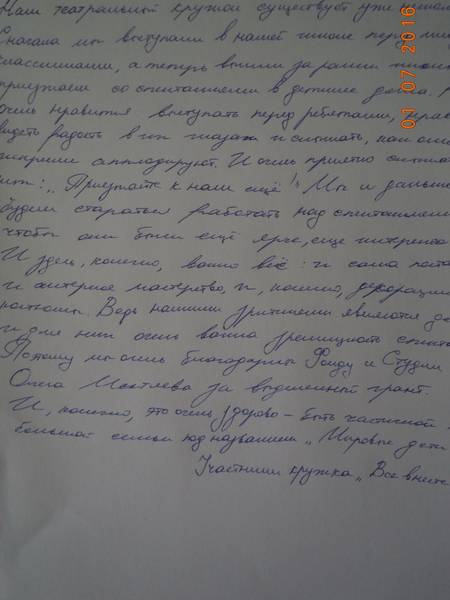 Наш театральный кружок существует уже
Сначала мы выступали в нашей школе перед
классниками, а теперь вышли за рамки
приезжаем со спектаклями в детские дома.
очень нравится выступать перед ребятами,
видеть радость в их глазах и слышать, как они
искренне аплодируют. И очень приятно
их: „Приезжайте к нам ещё!" Мы и дальше
будем стараться работать над спектаклями
чтобы они были ещё ярче, еще интересне
И здесь, конечно, важно всё: и сама
и актерское мастерство, и, конечно, декорации
костюмы. Ведь нашими зрителями являются де
и для них очень важна зрелищность
Поэтому мы очень благодарны Фонду и Студии
Олега за выделенный грант.
И, конечно, это очень здорово - быть частичкой
большой семьи под названием „Мировые дети
Участники кружка „Все вместе
01.07.2016